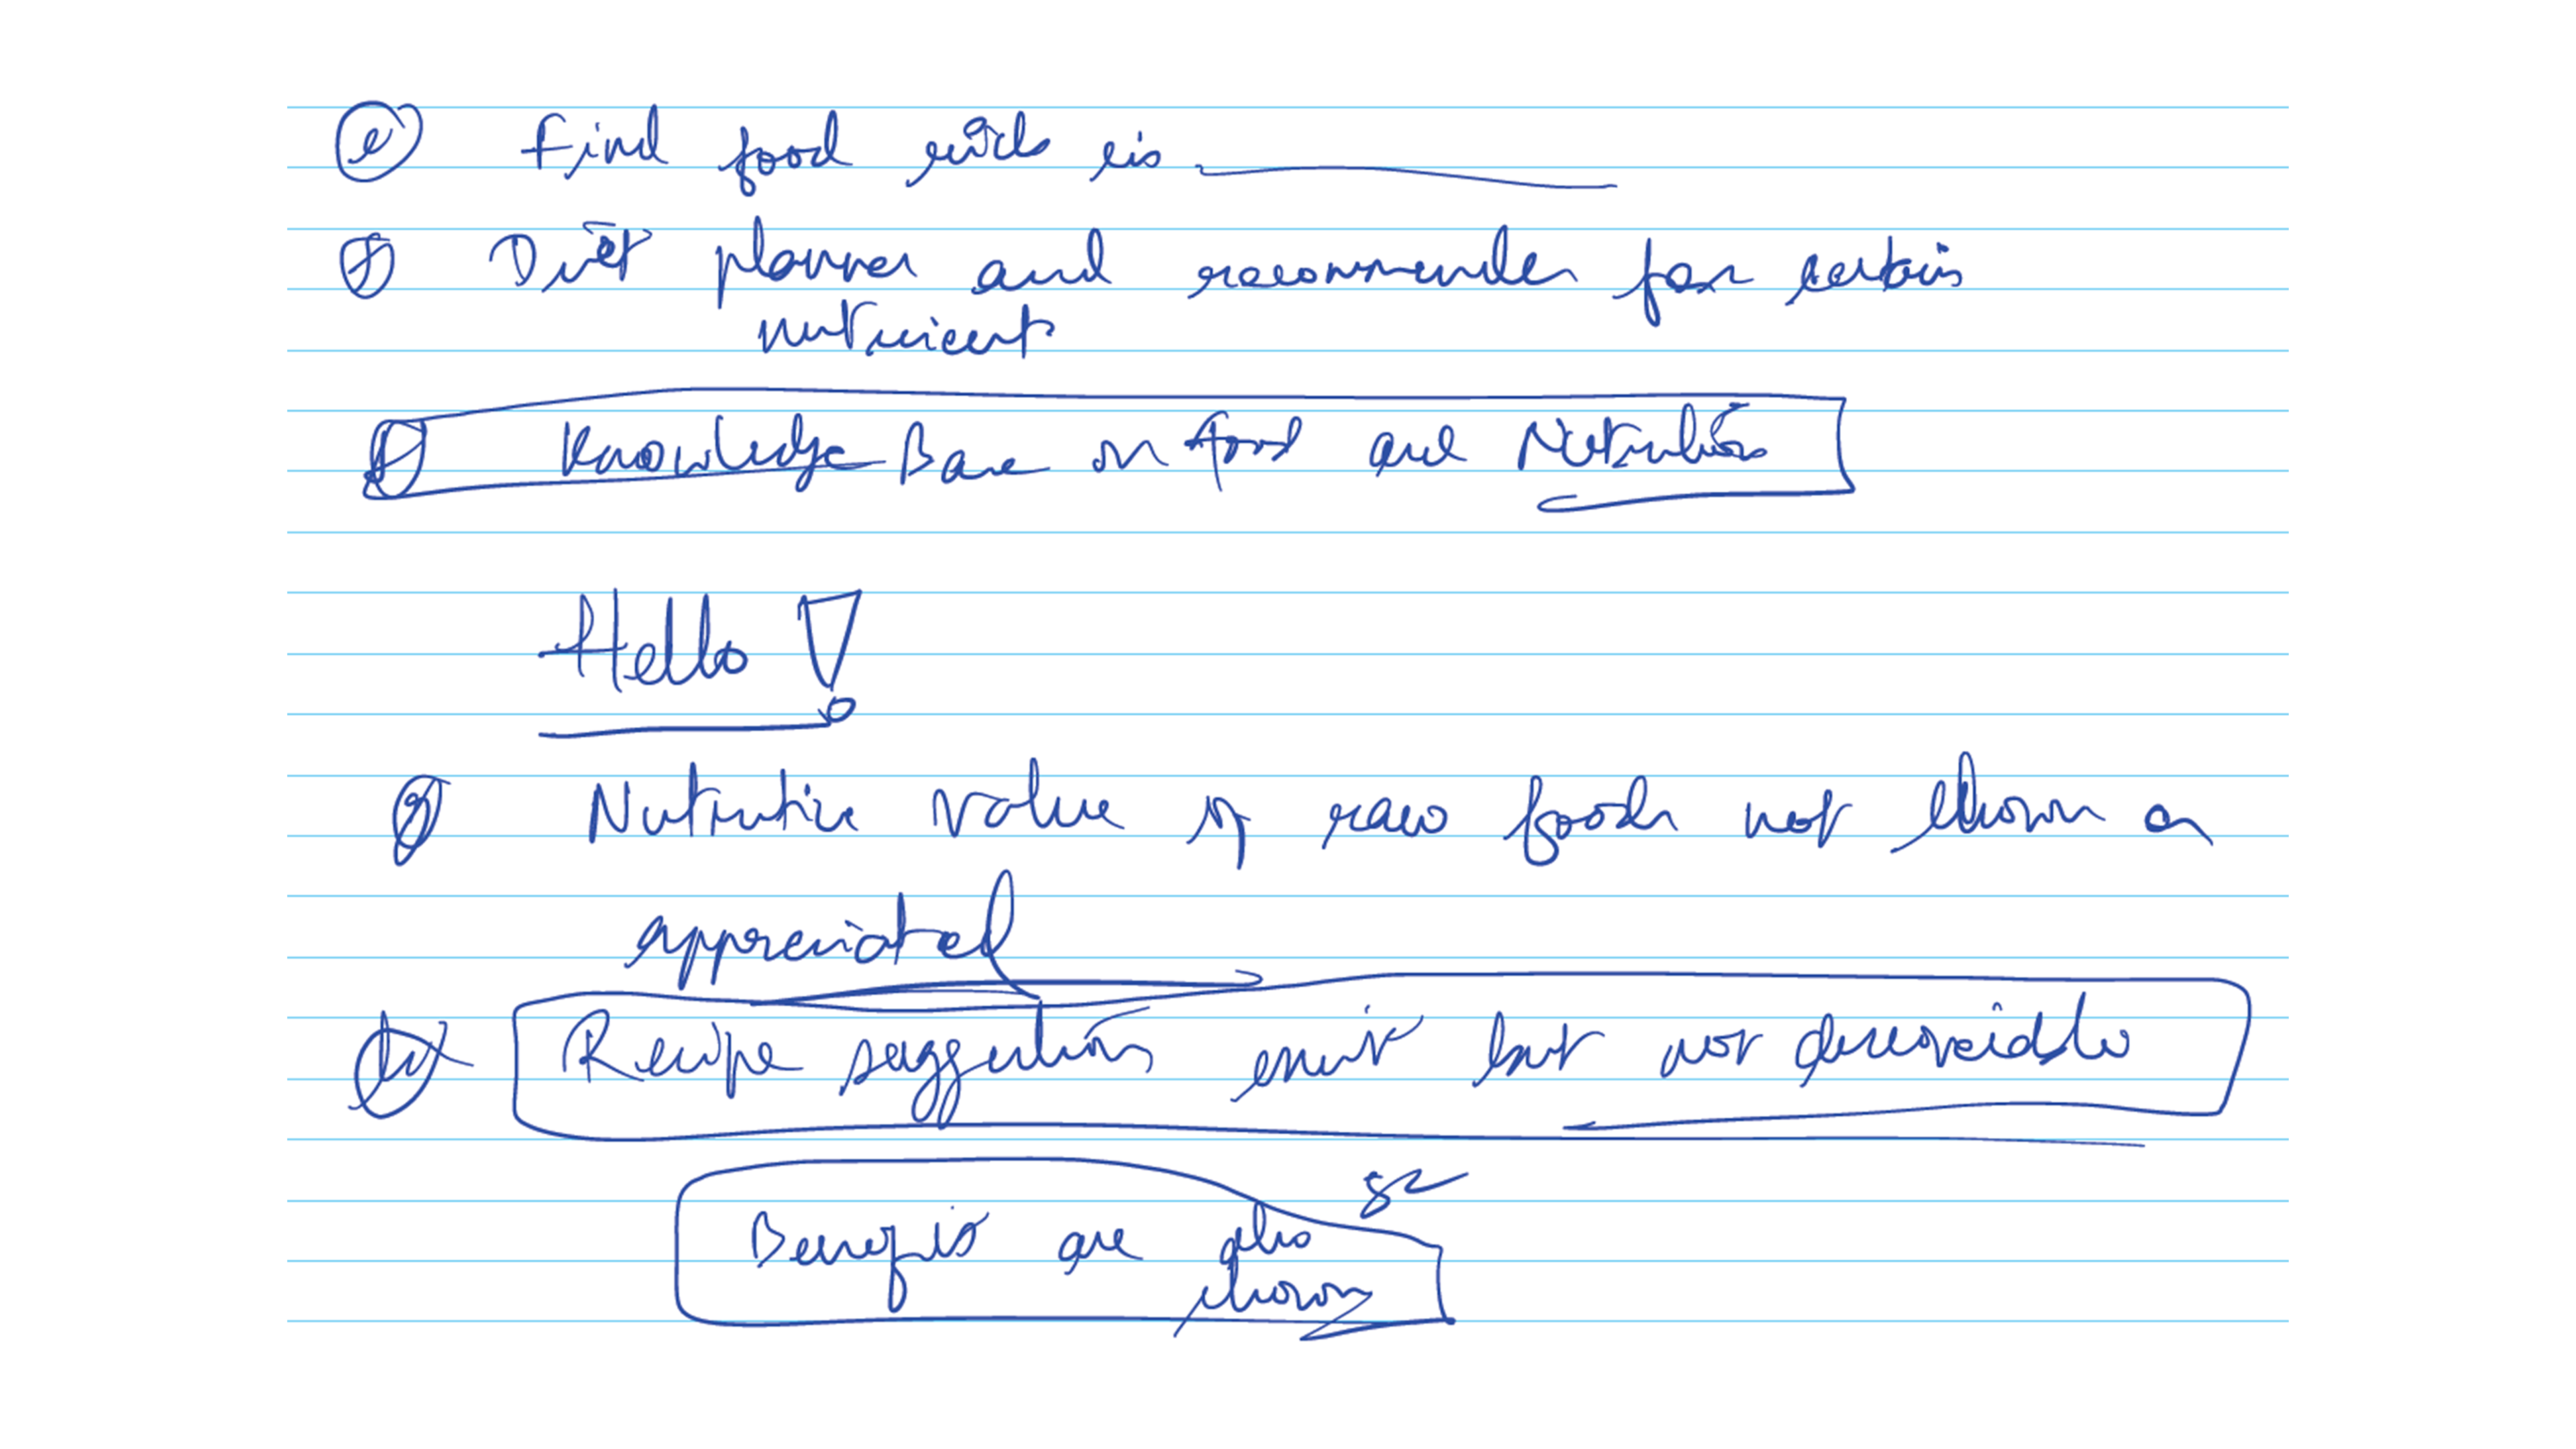 (e) Find food rich in
(f) Diet planner and recommender for certain
nutrient
(f) Knowledge Base on food and Nutrition
Hello!
(g) Nutritive Value of raw foods not shown or
appreciated
Recipe suggestions exist but not discoverable
Benefits are also
shown